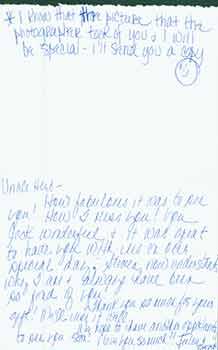 * I know that the picture that the
photographer took of you & I will
be special - I'll send you a copy
Uncle Herb -
How fabulous it was to see
you! How I miss you! You
look wonderful & it was great
to have you with us on our
special day. now understands
why I am & always have been
so fond of you.
Thank you so much for your
gift!
We hope to have another opportunity
to see you soon! Love you so much!